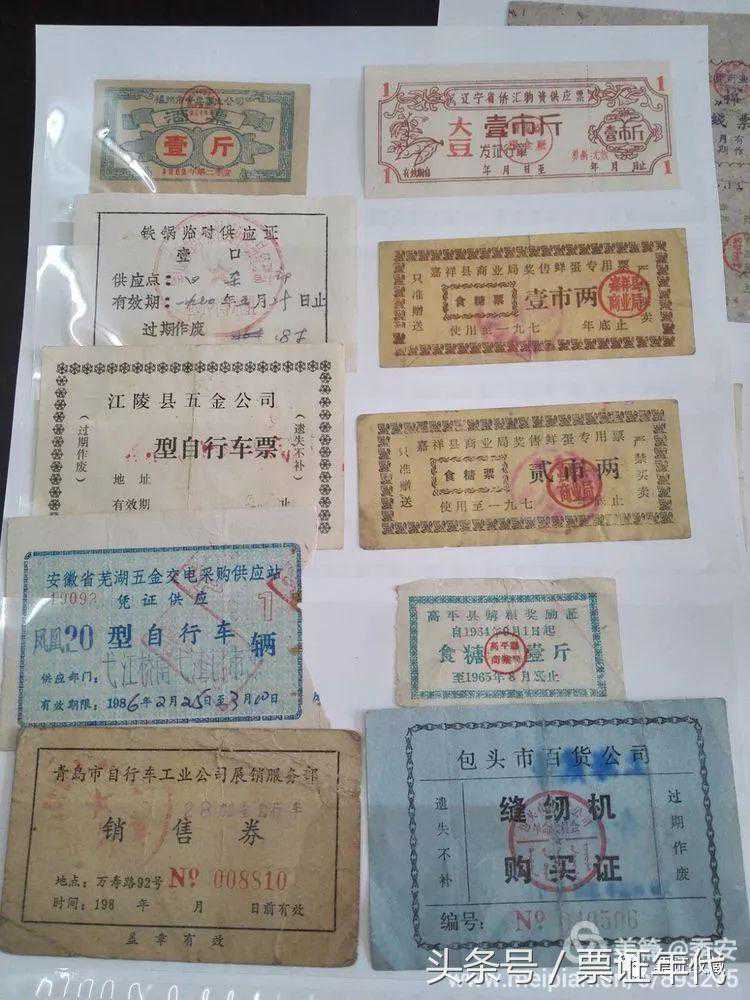 酒票
壹斤
铁锅临时供应证
壹 口
供应点：
有效期： 年 月 日止
过期作废
江陵县五金公司
型自行车票
地址
有效期 止
（过期作废）
（遗失不补）
安徽省芜湖五金交电采购供应站
19093 凭证供应
凤凰20型自行车
1
辆
供应部门：
有效期限：1986年2月25日至3月10日
青岛市自行车工业公司展销服务部
销售券
地点：万寿路92号 № 008810
时间：198 年 月 日前有效
盖章有效
辽宁省侨汇物资供应票
1
1
大豆
壹市斤
壹市斤
有效期自 年 月 日至 年 月 日止
1
1
嘉祥县商业局奖售鲜蛋专用票
只准赠送
食糖票
壹市两
嘉祥县商业局
使用至一九七 年底止
嘉祥县商业局奖售鲜蛋专用票
只准赠送
食糖票
贰市两
严禁买卖
商业局
使用至一九七 年底止
高平县 奖励证
食糖 壹斤
至1965年8月底止
包头市百货公司
遗失不补
缝纫机
购买证
过期作废
编号： №
头条号／票证年代